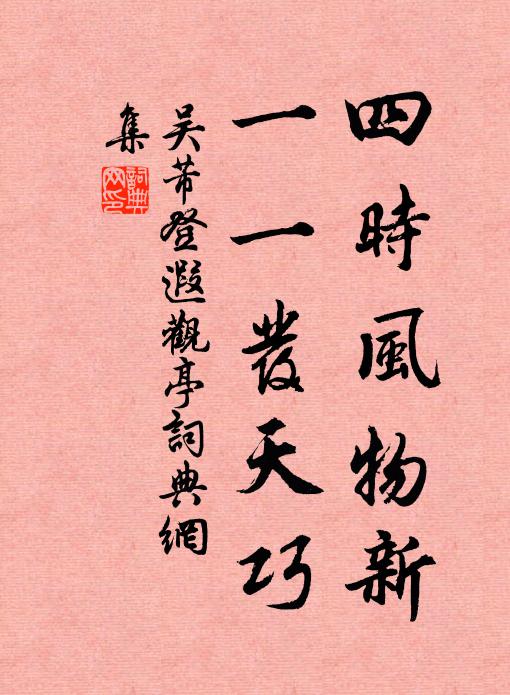 四時風物新
一一發天巧
吳芾登遐觀亭詞典網
集
詞典网印